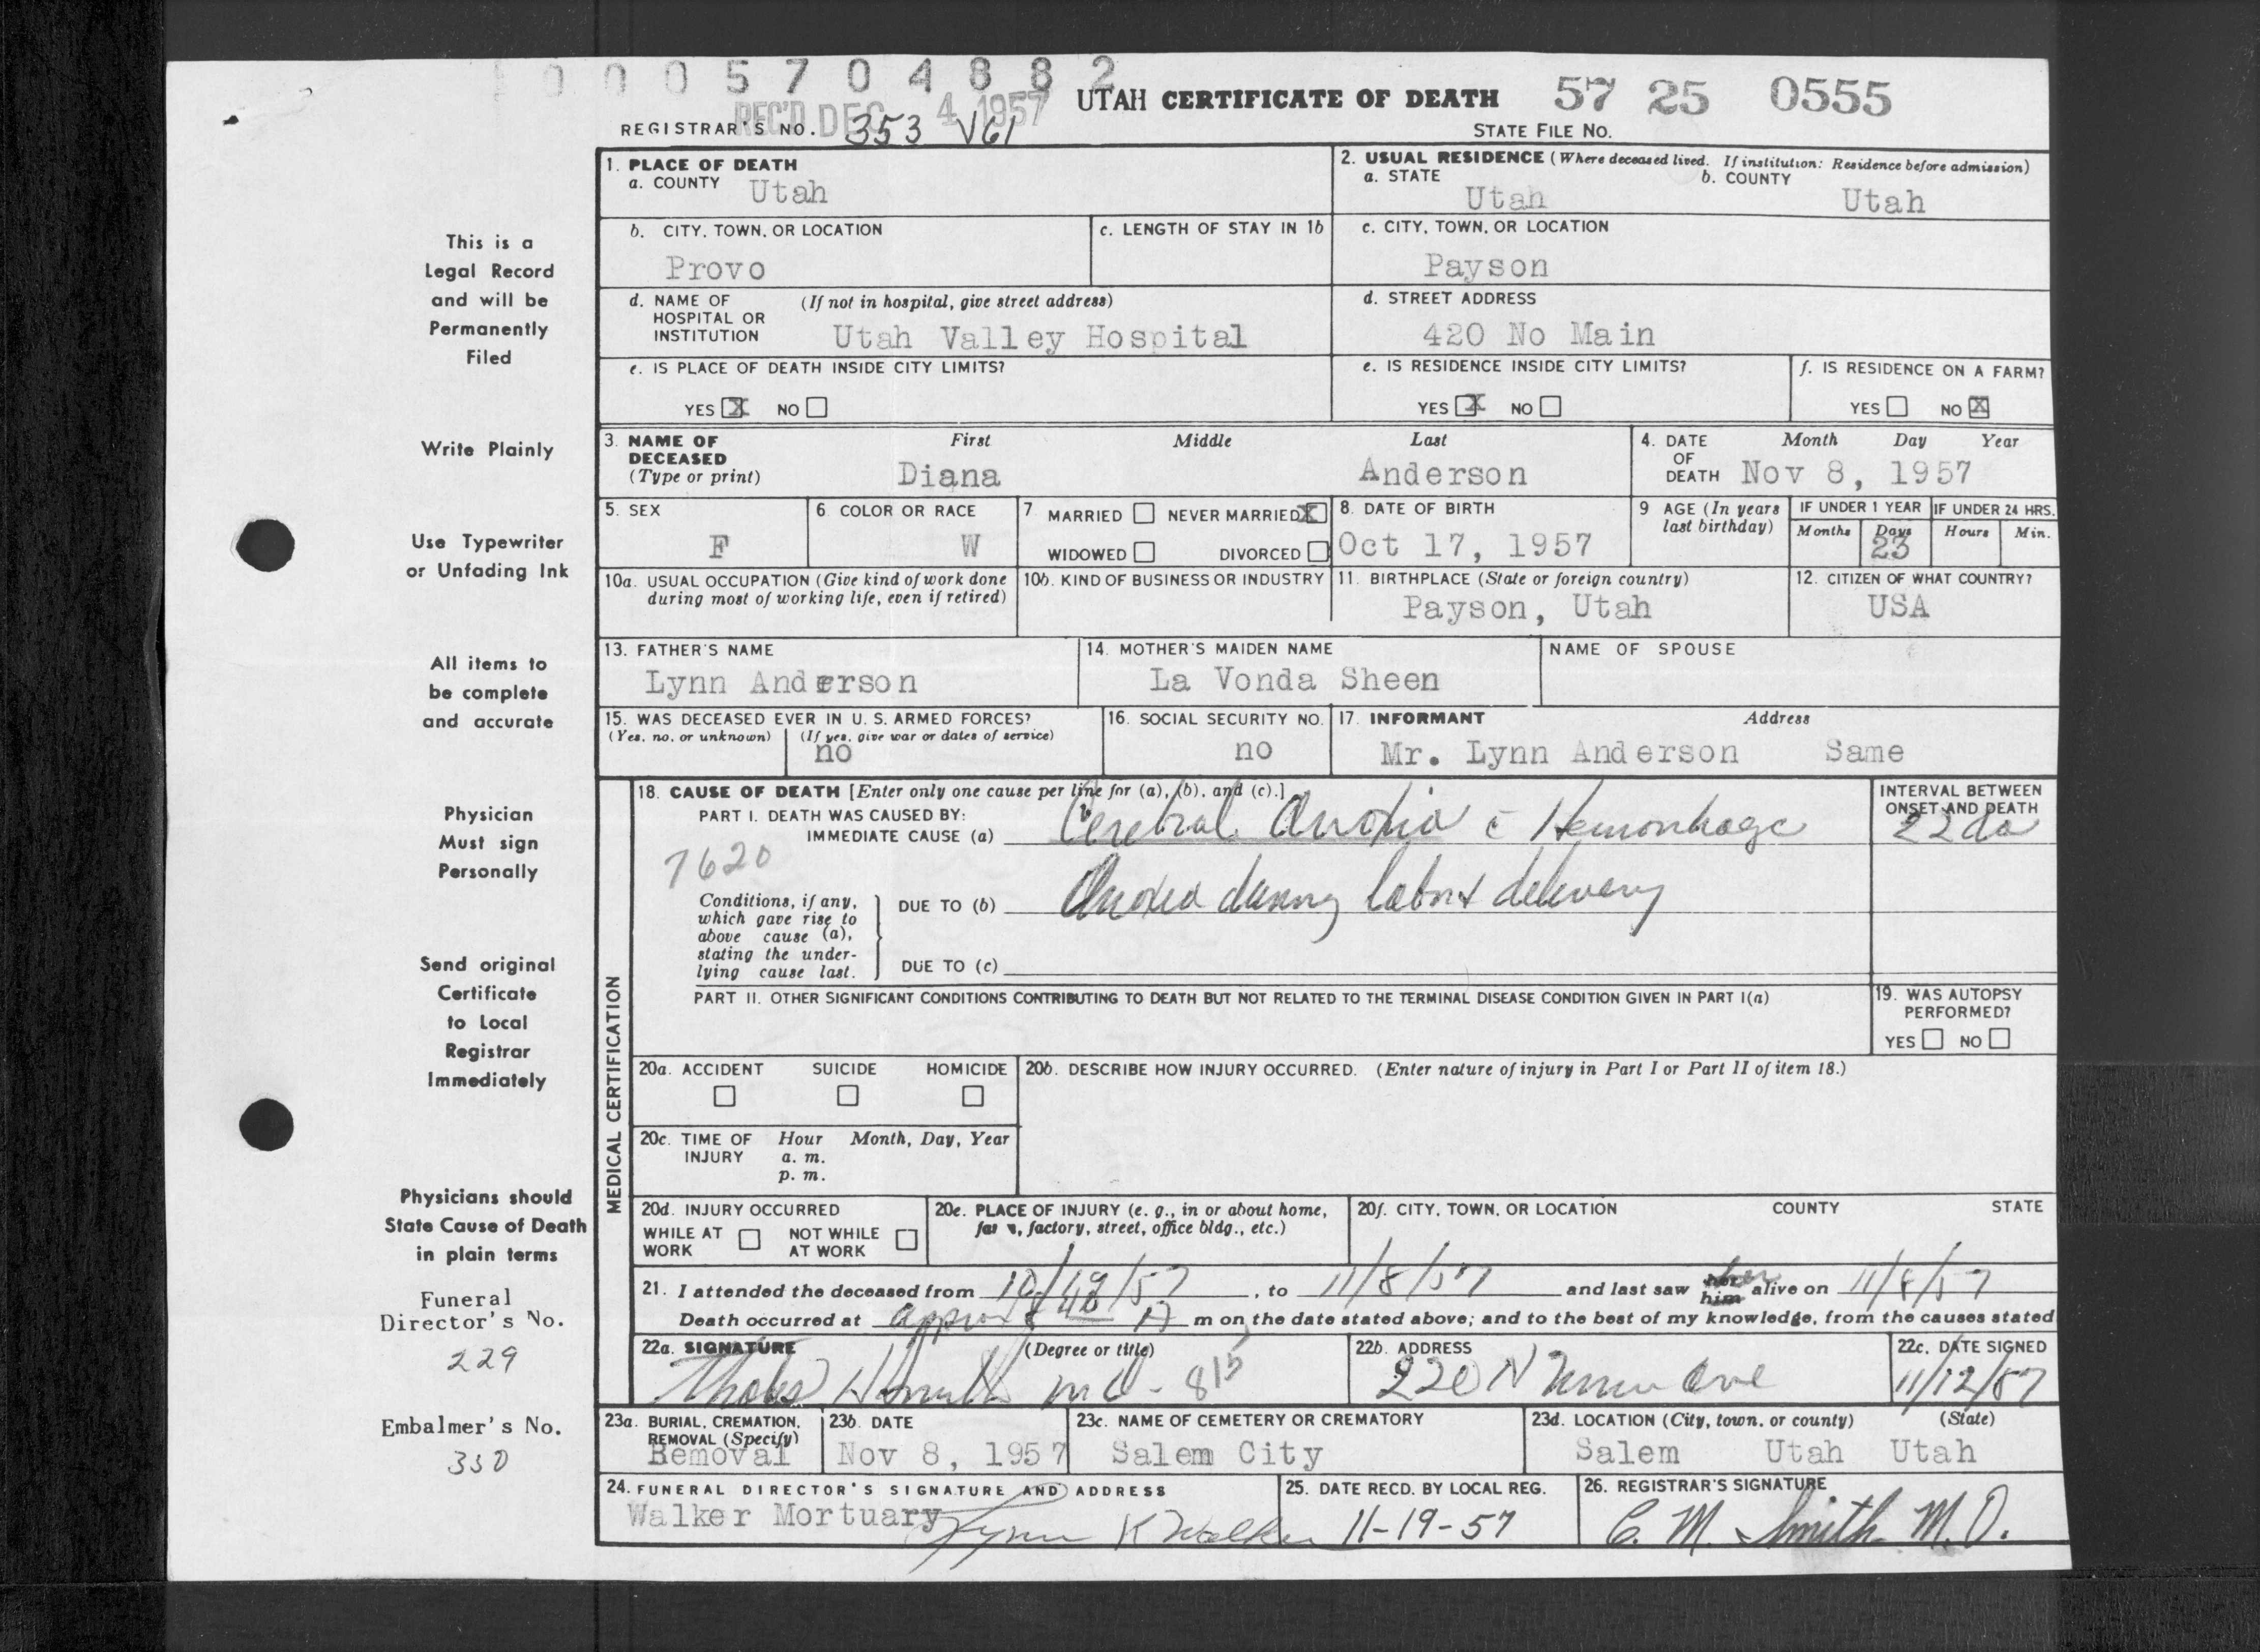 0 0 0 5 7 0 4 8 8 2
REC'D DEC 4 1957
UTAH CERTIFICATE OF DEATH 57 25 0555
REGISTRAR'S NO. 353 V61 STATE FILE NO.
1. PLACE OF DEATH
a. COUNTY Utah
2. USUAL RESIDENCE (Where deceased lived. If institution: Residence before admission)
a. STATE Utah b. COUNTY Utah
b. CITY, TOWN, OR LOCATION Provo
c. LENGTH OF STAY IN 1b
c. CITY, TOWN, OR LOCATION Payson
d. NAME OF HOSPITAL OR INSTITUTION (If not in hospital, give street address) Utah Valley Hospital
d. STREET ADDRESS 420 No Main
e. IS PLACE OF DEATH INSIDE CITY LIMITS?
YES X NO
e. IS RESIDENCE INSIDE CITY LIMITS?
YES X NO
f. IS RESIDENCE ON A FARM?
YES NO X
3. NAME OF DECEASED (Type or print) First Middle Last
Diana Anderson
4. DATE OF DEATH Month Day Year
Nov 8, 1957
5. SEX F
6. COLOR OR RACE W
7 MARRIED NEVER MARRIED X
WIDOWED DIVORCED
8. DATE OF BIRTH Oct 17, 1957
9 AGE (In years last birthday)
IF UNDER 1 YEAR Months Days 23
IF UNDER 24 HRS. Hours Min.
10a. USUAL OCCUPATION (Give kind of work done during most of working life, even if retired)
10b. KIND OF BUSINESS OR INDUSTRY
11. BIRTHPLACE (State or foreign country) Payson, Utah
12. CITIZEN OF WHAT COUNTRY? USA
13. FATHER'S NAME Lynn Anderson
14. MOTHER'S MAIDEN NAME La Vonda Sheen
NAME OF SPOUSE
15. WAS DECEASED EVER IN U. S. ARMED FORCES?
(Yes, no, or unknown) (If yes, give war or dates of service) no
16. SOCIAL SECURITY NO. no
17. INFORMANT Address
Mr. Lynn Anderson Same
MEDICAL CERTIFICATION
18. CAUSE OF DEATH [Enter only one cause per line for (a), (b), and (c).]
PART I. DEATH WAS CAUSED BY:
IMMEDIATE CAUSE (a) Cerebral Anoxia c Hemorrhage
INTERVAL BETWEEN ONSET AND DEATH
22 da
7620
Conditions, if any, which gave rise to above cause (a), stating the underlying cause last.
DUE TO (b) Anoxia during labor & delivery
DUE TO (c)
PART II. OTHER SIGNIFICANT CONDITIONS CONTRIBUTING TO DEATH BUT NOT RELATED TO THE TERMINAL DISEASE CONDITION GIVEN IN PART I(a)
19. WAS AUTOPSY PERFORMED?
YES NO
20a. ACCIDENT SUICIDE HOMICIDE
20b. DESCRIBE HOW INJURY OCCURRED. (Enter nature of injury in Part I or Part II of item 18.)
20c. TIME OF INJURY Hour Month, Day, Year
a. m.
p. m.
20d. INJURY OCCURRED
WHILE AT WORK NOT WHILE AT WORK
20e. PLACE OF INJURY (e. g., in or about home, farm, factory, street, office bldg., etc.)
20f. CITY, TOWN, OR LOCATION COUNTY STATE
21. I attended the deceased from , to 11/8/57 and last saw her him alive on 11/8/57
Death occurred at approx A m on the date stated above; and to the best of my knowledge, from the causes stated
22a. SIGNATURE (Degree or title)
MD - 815
22b. ADDRESS
220 N Univ Ave
22c. DATE SIGNED
11/12/57
23a. BURIAL, CREMATION, REMOVAL (Specify) Removal
23b. DATE Nov 8, 1957
23c. NAME OF CEMETERY OR CREMATORY Salem City
23d. LOCATION (City, town, or county) (State)
Salem Utah Utah
24. FUNERAL DIRECTOR'S SIGNATURE AND ADDRESS
Walker Mortuary Lynn K Walker
25. DATE RECD. BY LOCAL REG.
11-19-57
26. REGISTRAR'S SIGNATURE
C. M. Smith M.D.
This is a
Legal Record
and will be
Permanently
Filed
Write Plainly
Use Typewriter
or Unfading Ink
All items to
be complete
and accurate
Physician
Must sign
Personally
Send original
Certificate
to Local
Registrar
Immediately
Physicians should
State Cause of Death
in plain terms
Funeral
Director's No.
229
Embalmer's No.
350